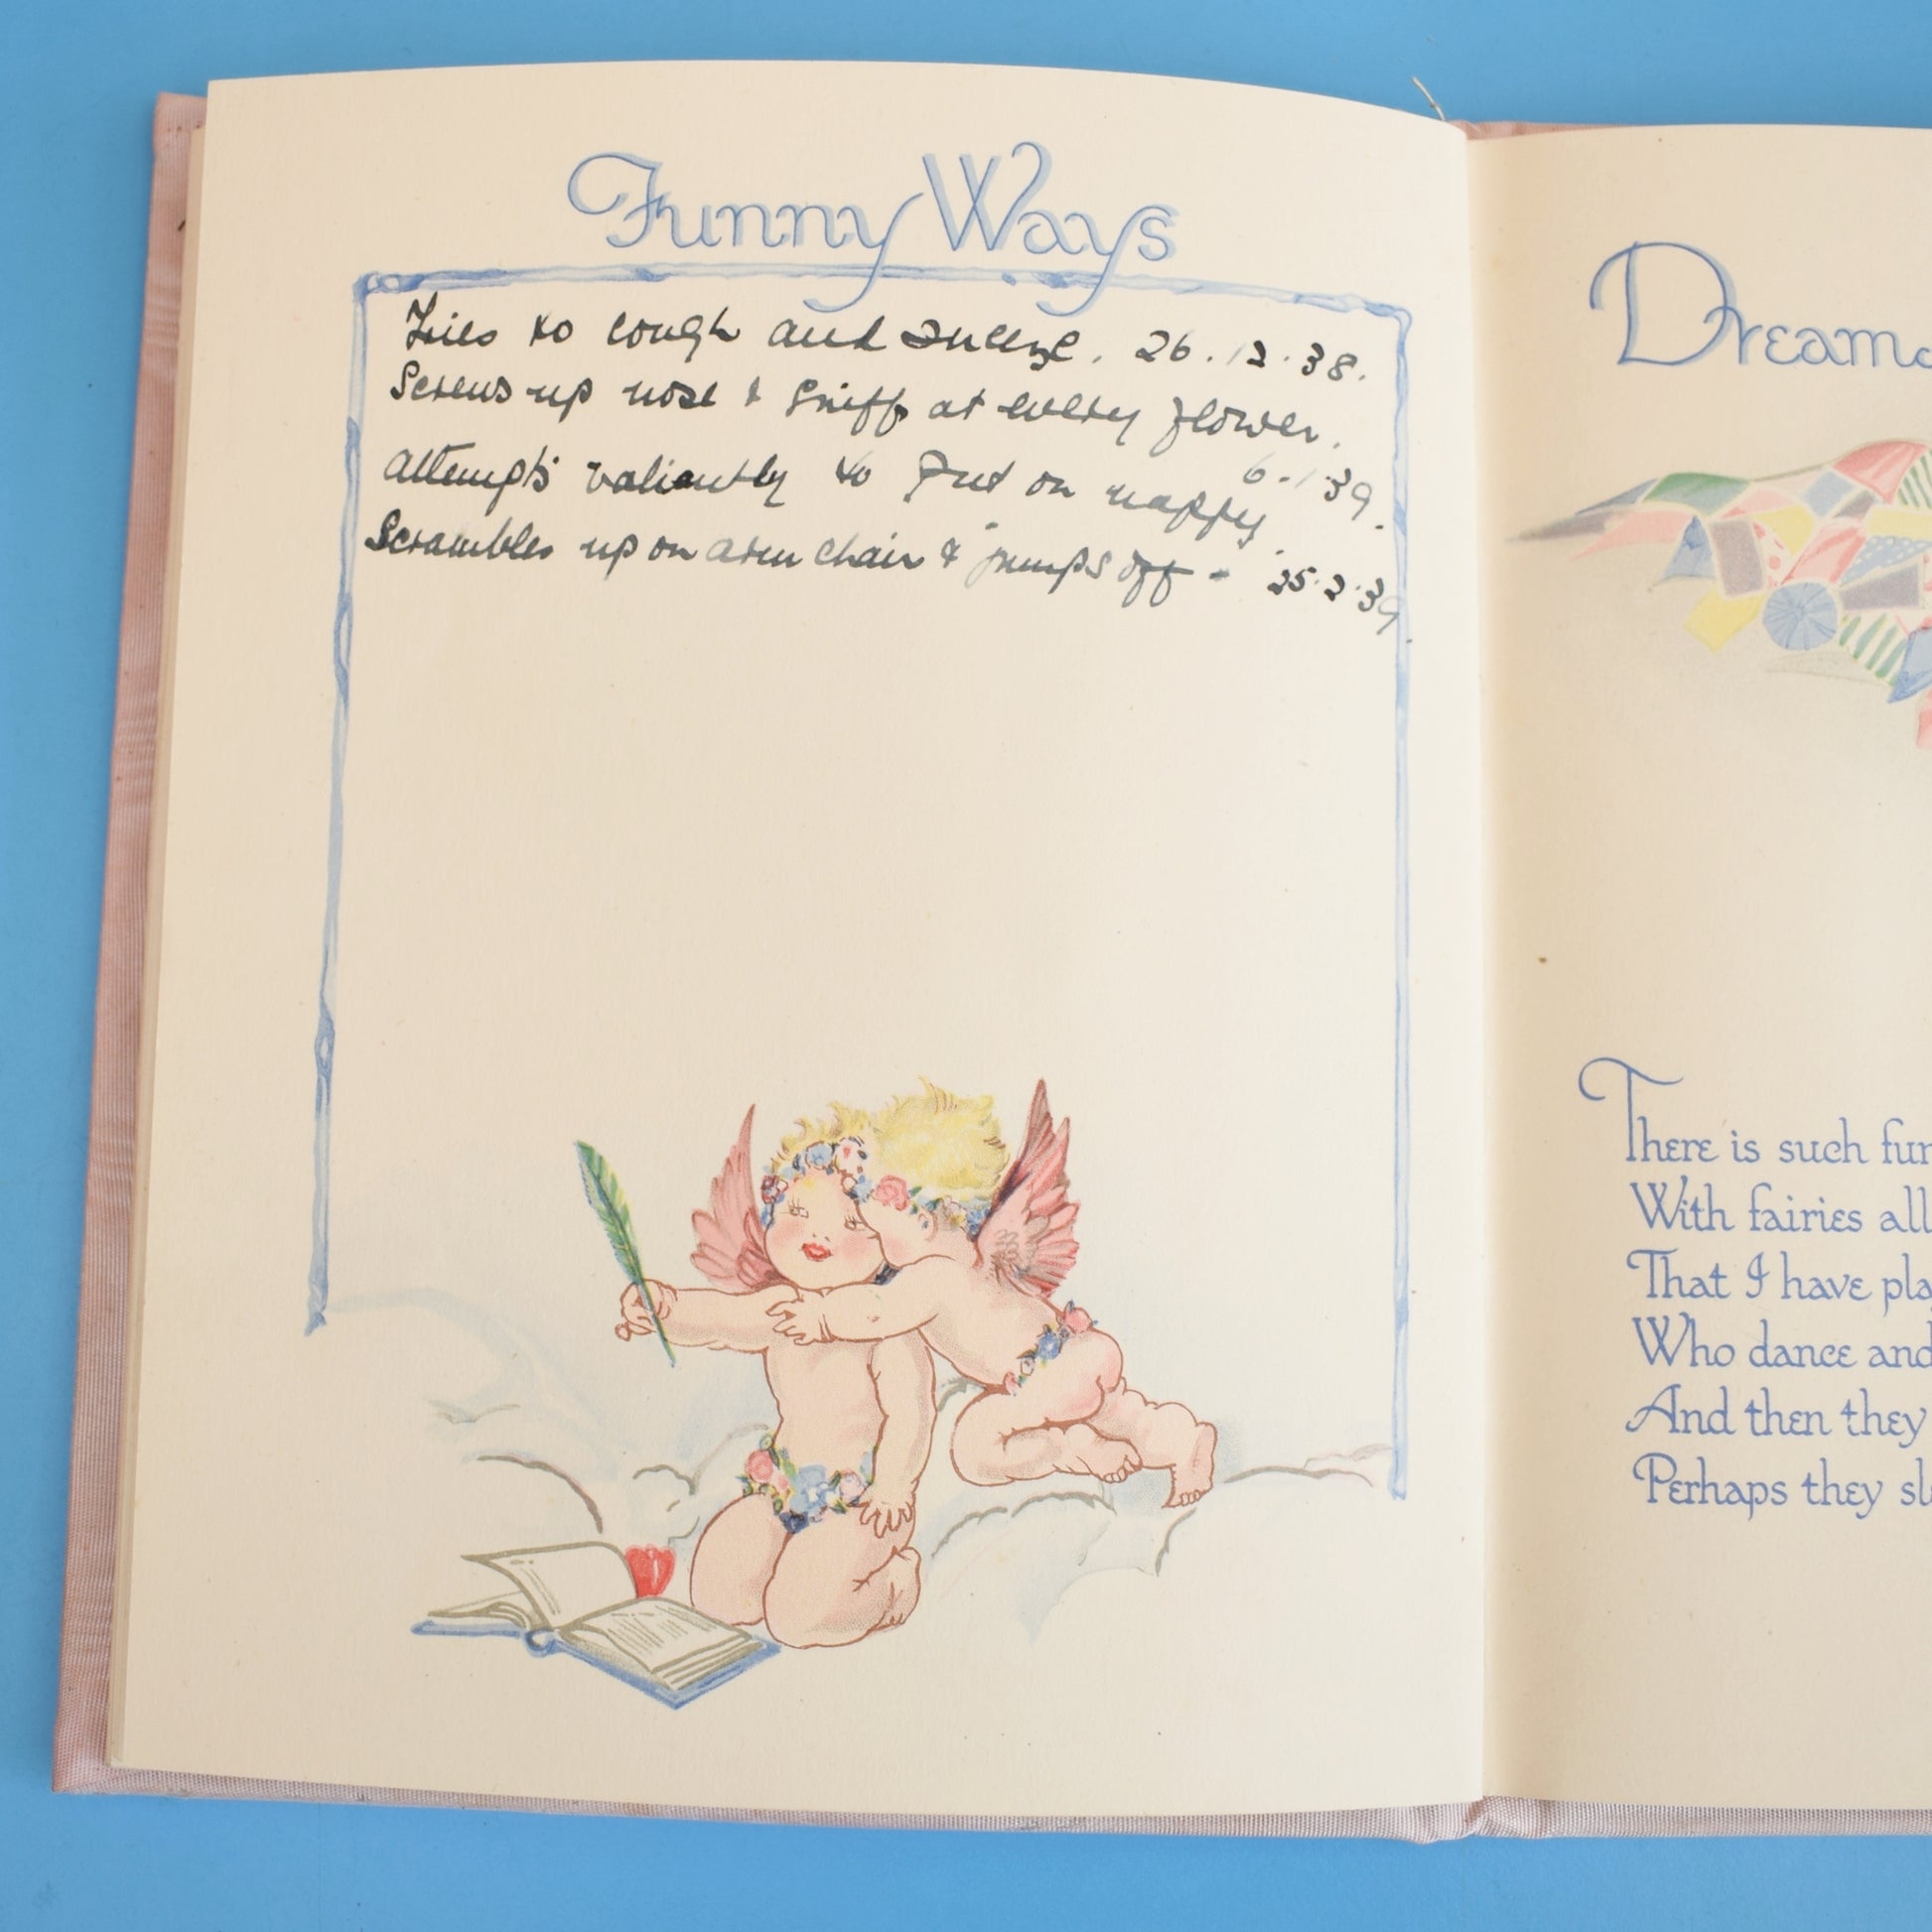 Funny Ways
Tries to cough and sneeze. 26.12.38.
Screws up nose & sniffs at every flower.
6.1.39.
Attempts valiantly to put on nappy.
Scrambles up on arm chair & "jumps off - 25.2.39.
Dream
There is such fun
With fairies all
That I have pla
Who dance and
And then they
Perhaps they sl